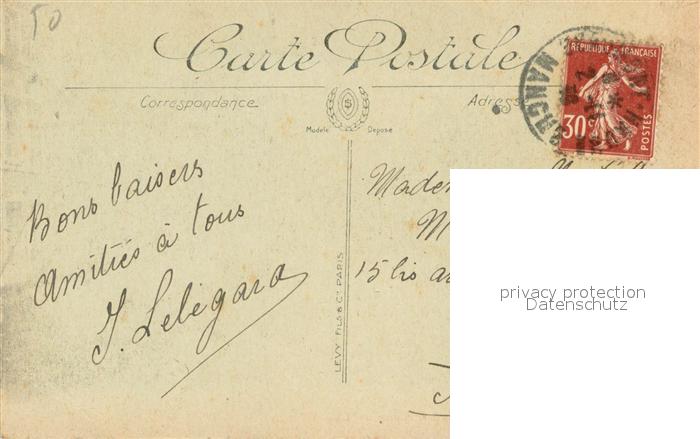 50
Carte Postale
Correspondance
Adresse
Modèle Déposé
RÉPUBLIQUE FRANÇAISE
30c
POSTES
MANCHE
Bons baisers
Amitiés à tous
J. Lelégard
LEVY FILS & Cie PARIS
Madem
M
15 bis
privacy protection
Datenschutz